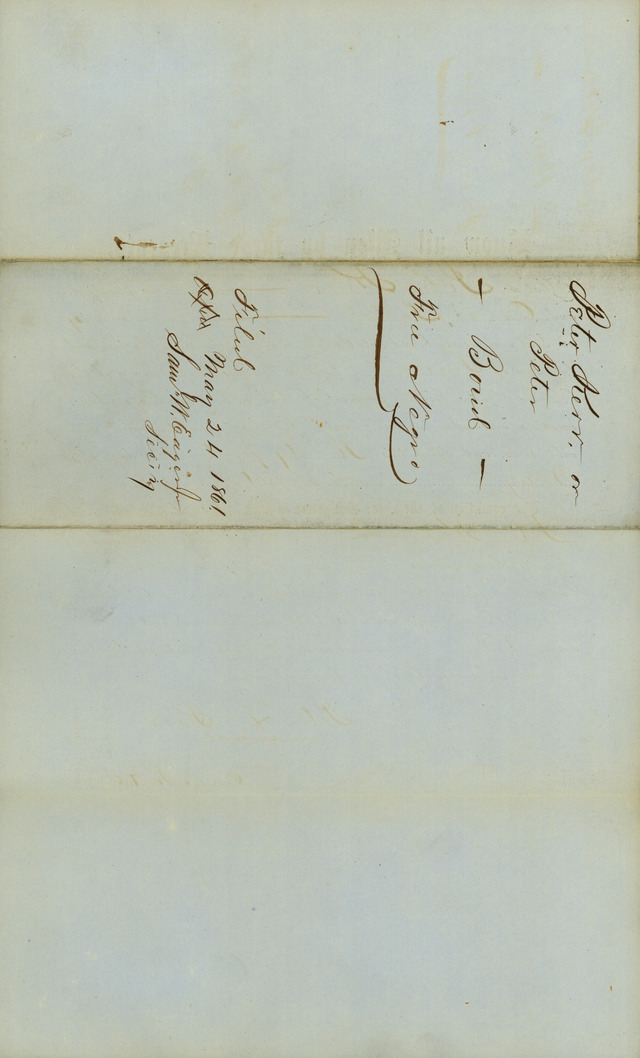 Peter Kerr, or
Peter
— Bond —
Free Negro
Filed
May 24 1861
Saml W Eager Jr